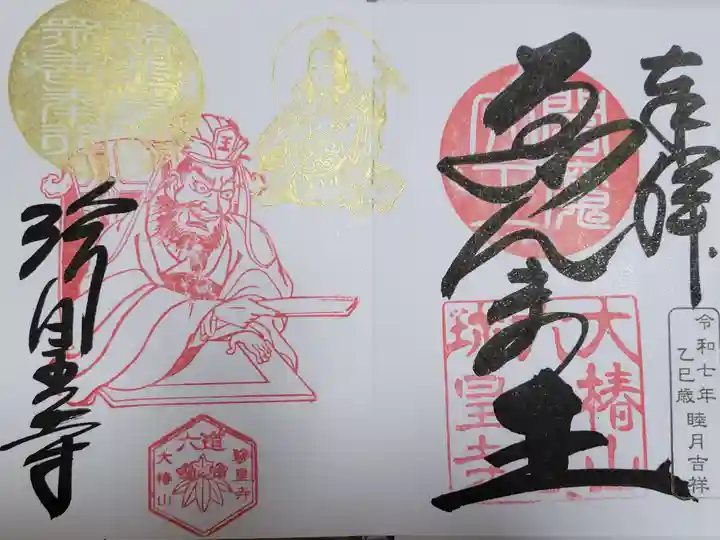 奉拝
令和七年
乙巳歳 睦月吉祥
えんま王
閻魔
大椿山
六
珍皇寺
珍皇寺
六道
大椿山
珍皇寺